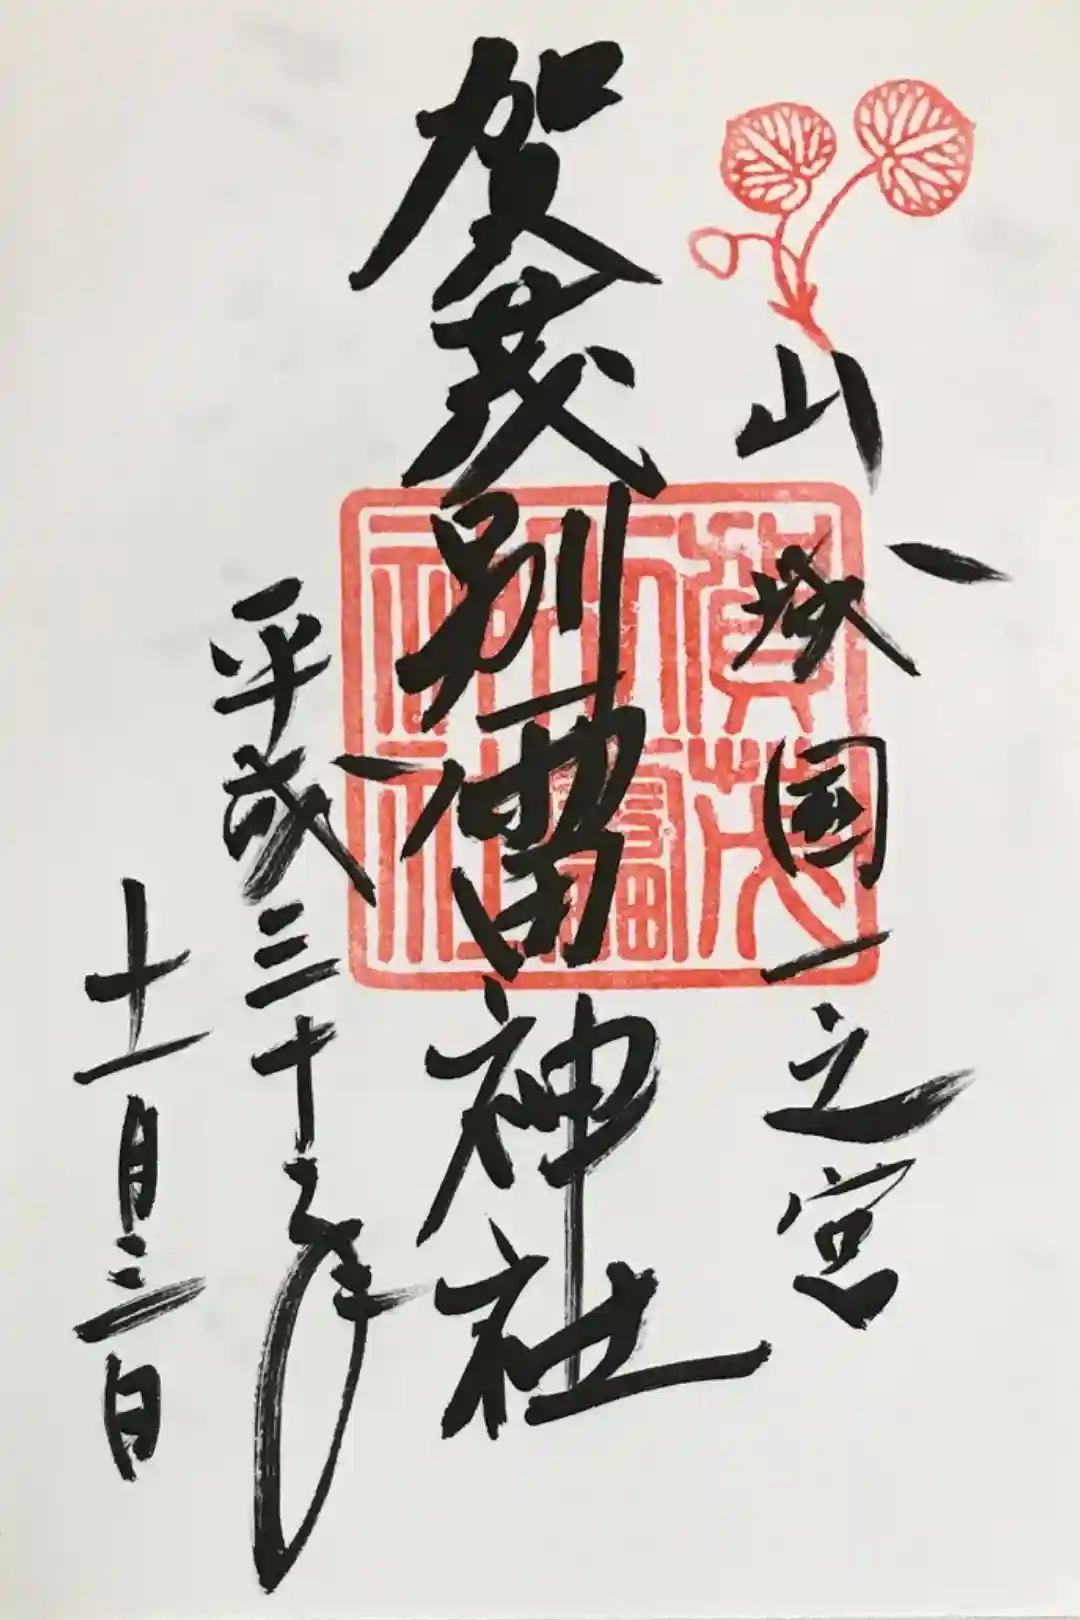 山城国一之宮
賀茂別雷神社
平成三十年
十一月三日
賀茂
別雷
神社